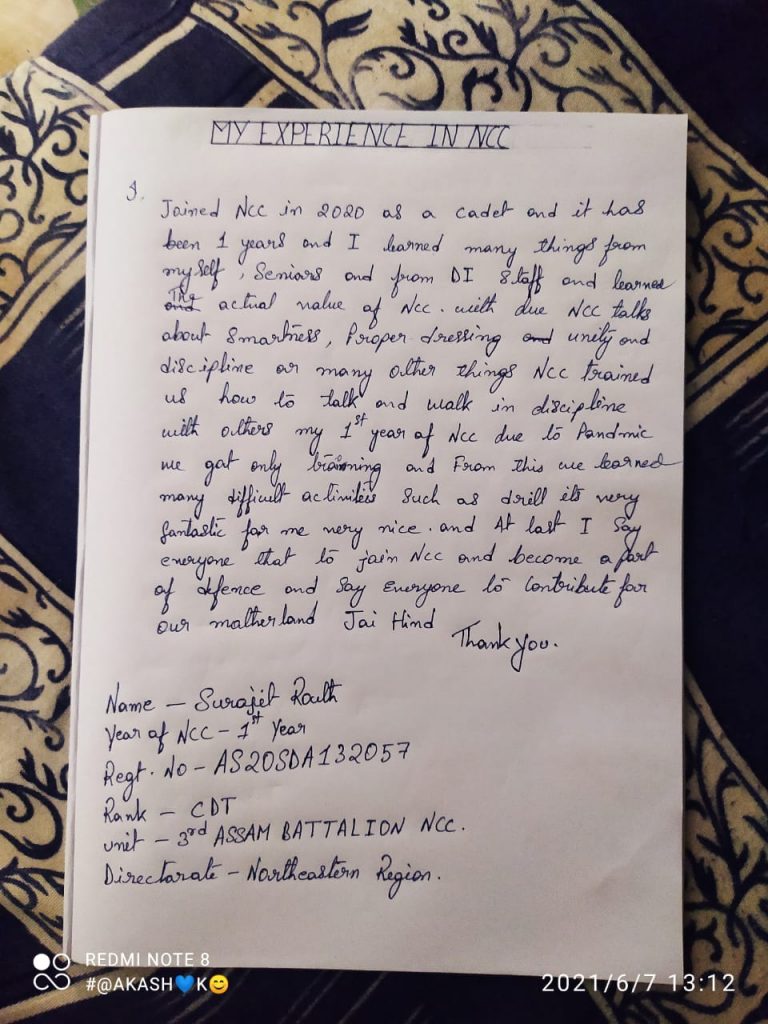 MY EXPERIENCE IN NCC
I.
Joined NCC in 2020 as a cadet and it has
been 1 years and I learned many things from
myself, Seniors and from DI Staff and learned
The actual value of NCC. with due NCC talks
about Smartness, Proper dressing and unity and
discipline or many other things NCC trained
us how to talk and walk in discipline
with others my 1st year of NCC due to Pandmic
we got only training and From this we learned
many difficult activities Such as drill its very
fantastic for me very nice. and At last I Say
everyone that to join NCC and become a part
of defence and Say Everyone to Contribute for
our motherland Jai Hind
Thank you.
Name – Surajit Routh
Year of NCC – 1st Year
Regt. No – AS20SDA132057
Rank – CDT
unit – 3rd ASSAM BATTALION NCC.
Directorate – Northeastern Region.
REDMI NOTE 8
#@AKASH💙K😊
2021/6/7 13:12